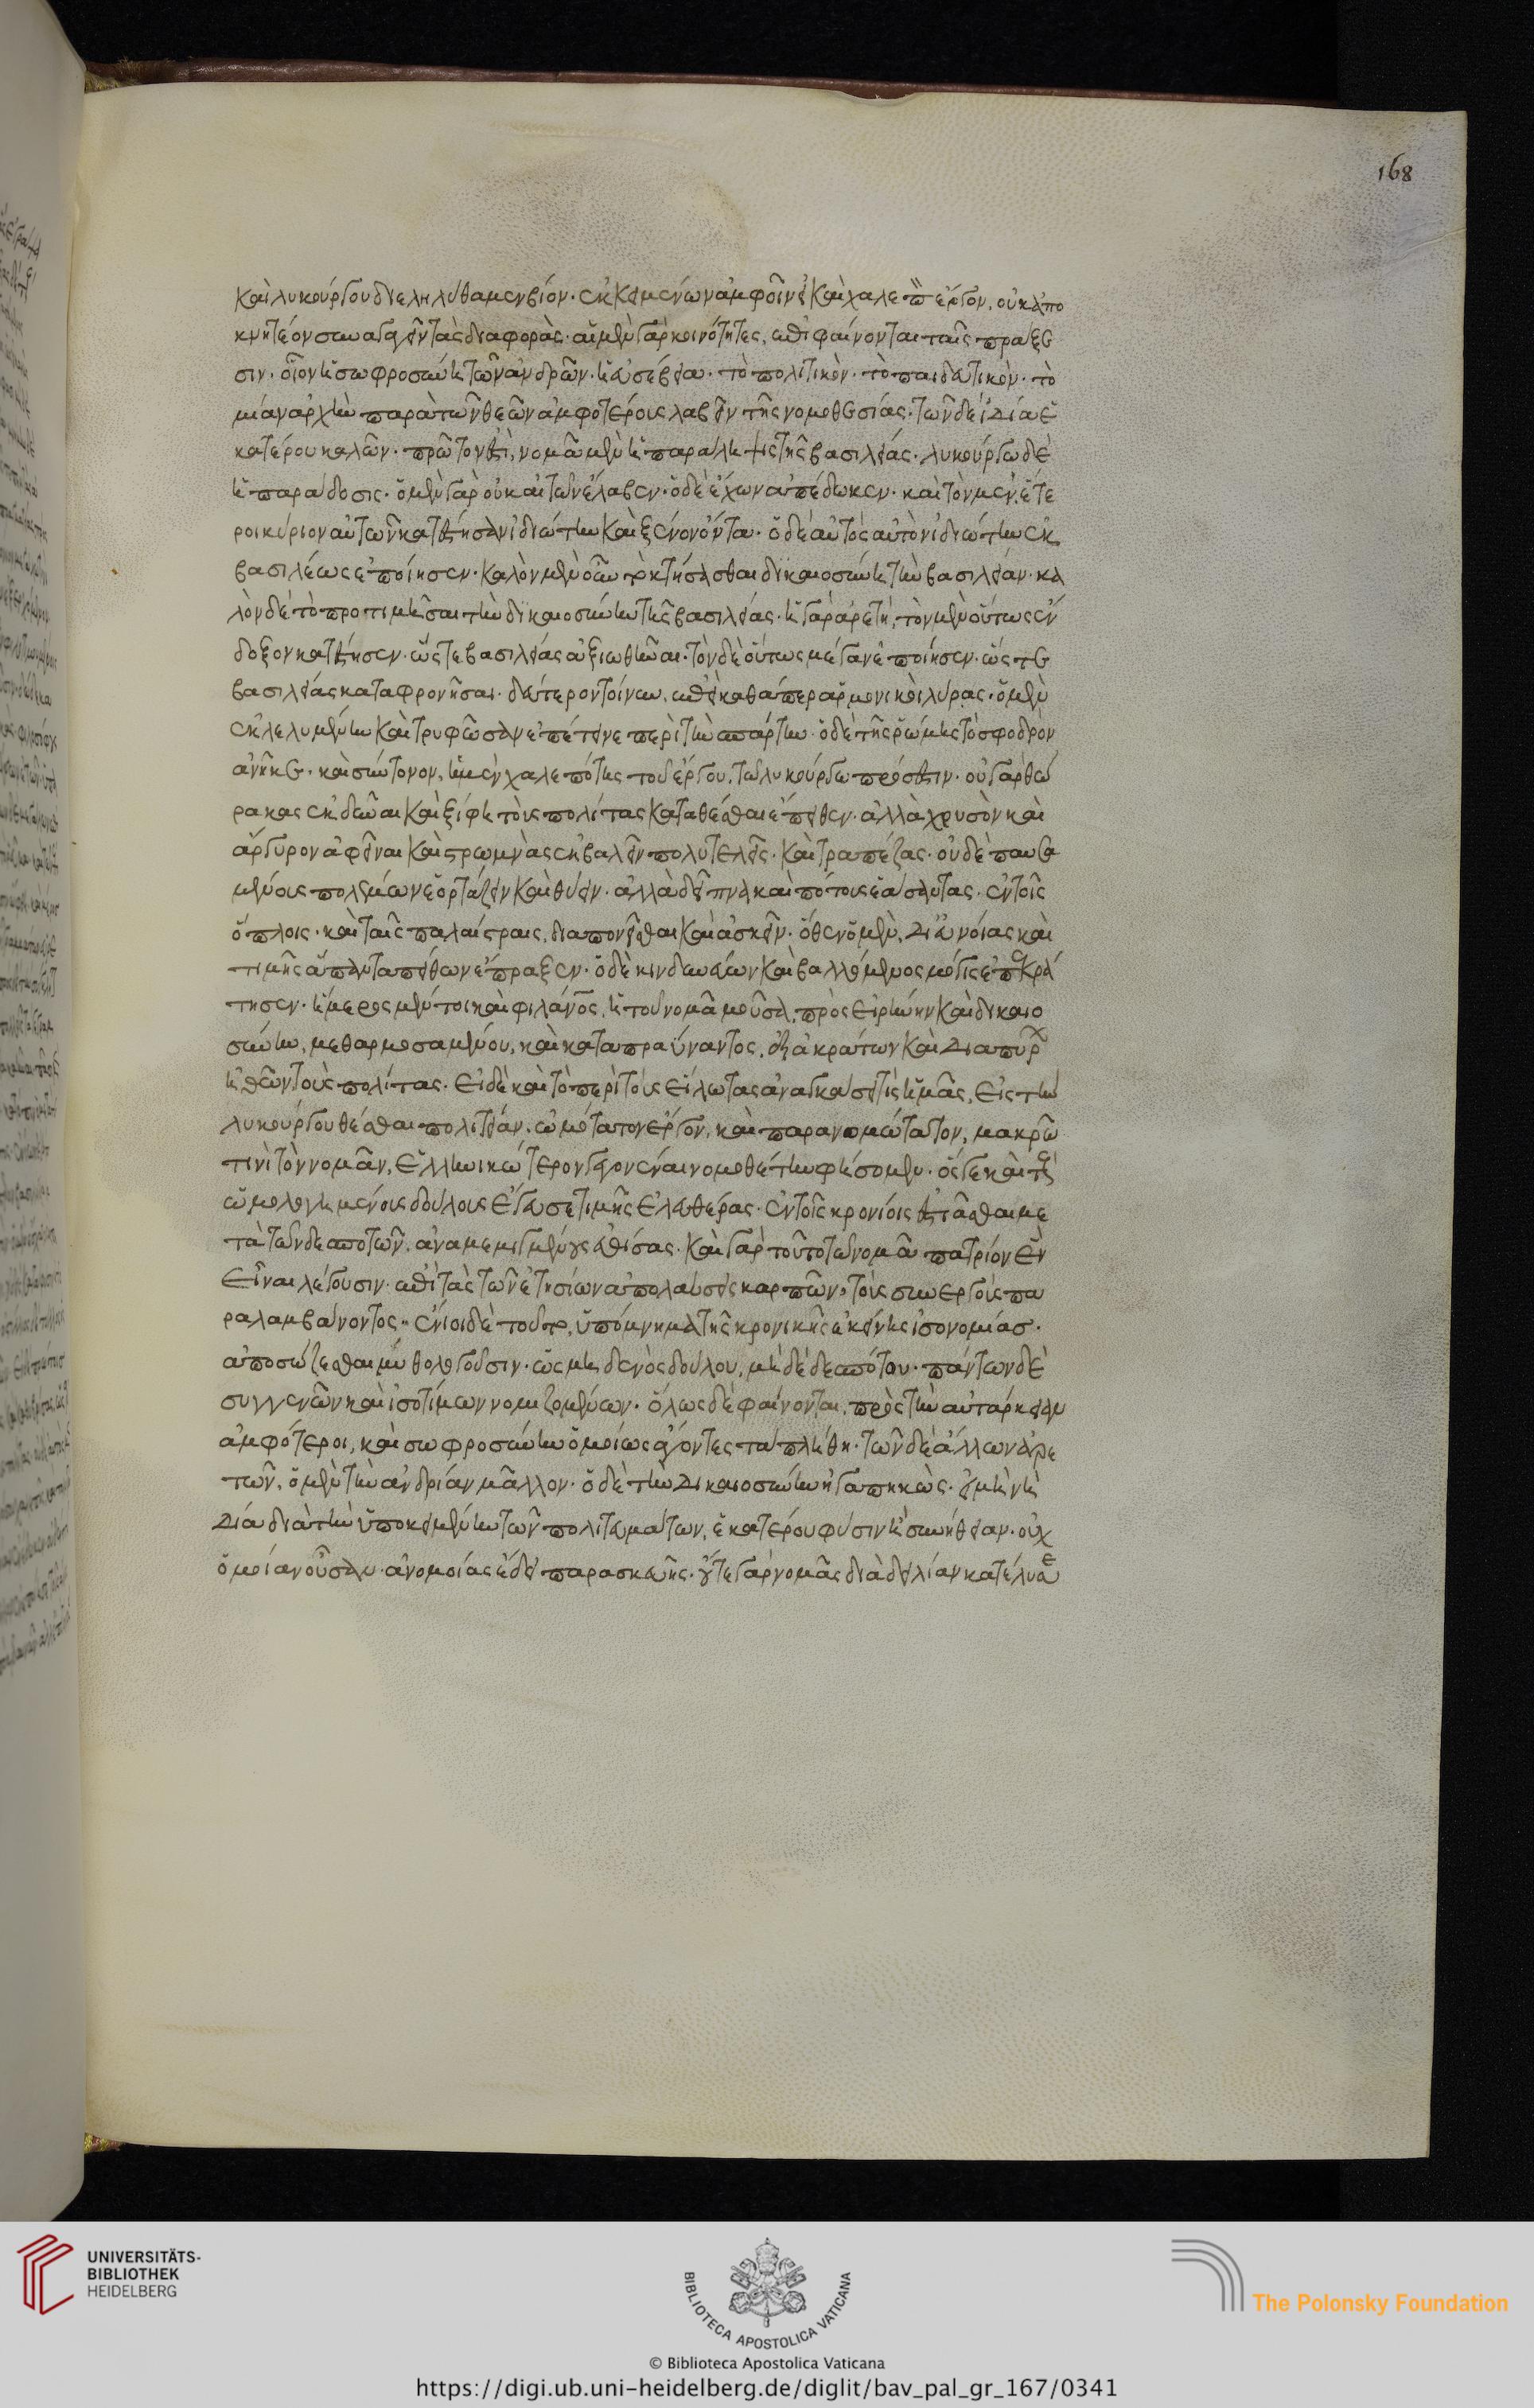 καὶ λυκούργου διεληλύθαμεν βίον· ἐκκειμένων ἀμφοῖν εἰ καὶ χαλεπὸν ἔργον, οὐκ ἀπο
κνητέον συναγαγεῖν τὰς διαφοράς· αἱ μὲν γὰρ κοινότητες, ἐπιφαίνονται ταῖς πράξε
σιν· οἷον ἡ σωφροσύνη τῶν ἀνδρῶν· ἡ εὐσέβεια· τὸ πολιτικόν· τὸ παιδευτικόν· τὸ
μίαν ἀρχὴν παρὰ τῶν θεῶν ἀμφοτέροις λαβεῖν τῆς νομοθεσίας· τῶν δὲ ἰδία ἑ
κατέρου καλῶν· πρῶτον ἐστὶ, νομᾶ μὲν ἡ παράληψις τῆς βασιλείας· λυκούργω δὲ
ἡ παράδοσις· ὁ μὲν γὰρ οὐκ αἰτῶν ἔλαβεν· ὁ δὲ ἔχων ἀπέδωκεν· καὶ τὸν μὲν, ἕτε
ροι κύριον αὐτῶν κατέστησαν ἰδιώτην καὶ ξένον ὄντα· ὁ δὲ αὐτὸς αὑτὸν ἰδιώτην ἐκ
βασιλέως ἐποίησεν· καλὸν μὲν οὖν τὸ κτήσασθαι δικαιοσύνη τὴν βασιλείαν· κα
λὸν δὲ τὸ προτιμῆσαι τὴν δικαιοσύνην τῆς βασιλείας· ἡ γὰρ ἀρετὴ, τὸν μὲν οὕτως ἔν
δοξον κατέστησεν· ὥστε βασιλείας ἀξιωθῆναι· τὸν δὲ οὕτως μέγαν ἐποίησεν· ὥστε
βασιλείας καταφρονῆσαι· δεύτερον τοίνυν, ἐπεὶ καθάπερ ἁρμονικοὶ λύρας· ὁ μὲν
ἐκλελυμένην καὶ τρυφῶσαν ἐπέτεινε περὶ τὴν σπάρτην· ὁ δὲ τῆς ῥώμης τὸ σφοδρὸν
ἀνῆκε· καὶ σύντονον, ἡ μὲν χαλεπότης τοῦ ἔργου, τῶ λυκούργω πρόσεστιν· οὐ γὰρ θώ
ρακας ἐκδῦναι καὶ ξίφη τοὺς πολίτας καταθέσθαι ἔπειθεν· ἀλλὰ χρυσὸν καὶ
ἄργυρον ἀφεῖναι καὶ στρωμνὰς ἐκβαλεῖν πολυτελεῖς· καὶ τραπέζας· οὐδὲ παυσα
μένοις πολέμων ἑορτάζειν καὶ θύειν· ἀλλὰ δεῖπνα καὶ πότους ἐάσαντας· ἐν τοῖς
ὅπλοις· καὶ ταῖς παλαίστραις, διαπονεῖσθαι καὶ ἀσκεῖν· ὅθεν ὁ μὲν, δι' εὐνοίας καὶ
τιμῆς ἅπαντα πείθων ἔπραξεν· ὁ δὲ κινδυνεύων καὶ βαλλόμενος μόγις ἐπεκρά
τησεν· ἥμερος μέντοι καὶ φιλάνος, ἡ τοῦ νομᾶ μοῦσα, πρὸς εἰρήνην καὶ δικαιο
σύνην, μεθαρμοσαμένου, καὶ καταπραΰναντος, ἐξ ἀκράτων καὶ διαπύρ
ἠθῶν τοὺς πολίτας· εἰ δὲ καὶ τὸ περὶ τοὺς εἵλωτας ἀναγκάσει τις ἡμᾶς, εἰς τὴν
λυκούργου θέσθαι πολιτείαν· ὠμότατον ἔργον, καὶ παρανομώτατον, μακρῶ
τινι τὸν νομᾶν, ἑλληνικώτερον γεγονέναι νομοθέτην φήσομεν· ὅς γε καὶ τοὺς
ὡμολογημένοις δούλοις ἔγευσε τιμῆς ἐλευθέρας· ἐν τοῖς κρονίοις ἑστιᾶσθαι με
τὰ τῶν δεσποτῶν, ἀναμεμιγμένους ἐθίσας· καὶ γὰρ τοῦτο τῶν νομᾶ πατρίον ἓν
εἶναι λέγουσιν· ἐπὶ τὰς τῶν ἐτησίων ἀπολαύσεις καρπῶν, τοὺς συνεργοὺς πα
ραλαμβάνοντος· ἔνιοι δὲ τοῦτο, ὑπόμνημα τῆς κρονικῆς ἐκείνης ἰσονομίασ·
ἀποσώζεσθαι μυθολογοῦσιν· ὡς μηδενὸς δούλου, μηδὲ δεσπότου· πάντων δὲ
συγγενῶν καὶ ἰσοτίμων νομιζομένων· ὅλως δὲ φαίνονται, πρὸς τὴν αὐτάρκειαν
ἀμφότεροι, καὶ σωφροσύνην ὁμοίως ἄγοντες τὰ πλήθη· τῶν δὲ ἄλλων ἀρε
τῶν, ὁ μὲν τὴν ἀνδρίαν μᾶλλον· ὁ δὲ τὴν δικαιοσύνην ἠγαπηκὼς· εἰ μὴ νὴ
δία διὰ τὴν ὑποκειμένην τῶν πολιτευμάτων, ἑκατέρου φύσιν ἢ συνήθειαν· οὐχ
ὁμοίαν οὖσαν· ἀνομοίας ἔδει παρασκευῆς· οὔτε γὰρ νομᾶς διὰ δειλίαν κατέλυσε
168
UNIVERSITÄTS-
BIBLIOTHEK
HEIDELBERG
BIBLIOTECA APOSTOLICA VATICANA
The Polonsky Foundation
© Biblioteca Apostolica Vaticana
https://digi.ub.uni-heidelberg.de/diglit/bav_pal_gr_167/0341